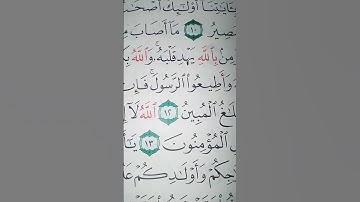 بِـَٔايَٰتِنَآ أُوْلَٰٓئِكَ أَصْحَٰ
صِيرُ ١٠ مَآ أَصَابَ مِ
مِنۢ بِٱللَّهِ يَهْدِ قَلْبَهُۥۚ وَٱللَّهُ بِ
وَأَطِيعُواْ ٱلرَّسُولَۚ فَإِن
لَٰغُ ٱلْمُبِينُ ١٢ ٱللَّهُ لَآ إِ
لِ ٱلْمُؤْمِنُونَ ١٣ يَٰٓأَ
جِكُمْ وَأَوْلَٰدِكُمْ عَد